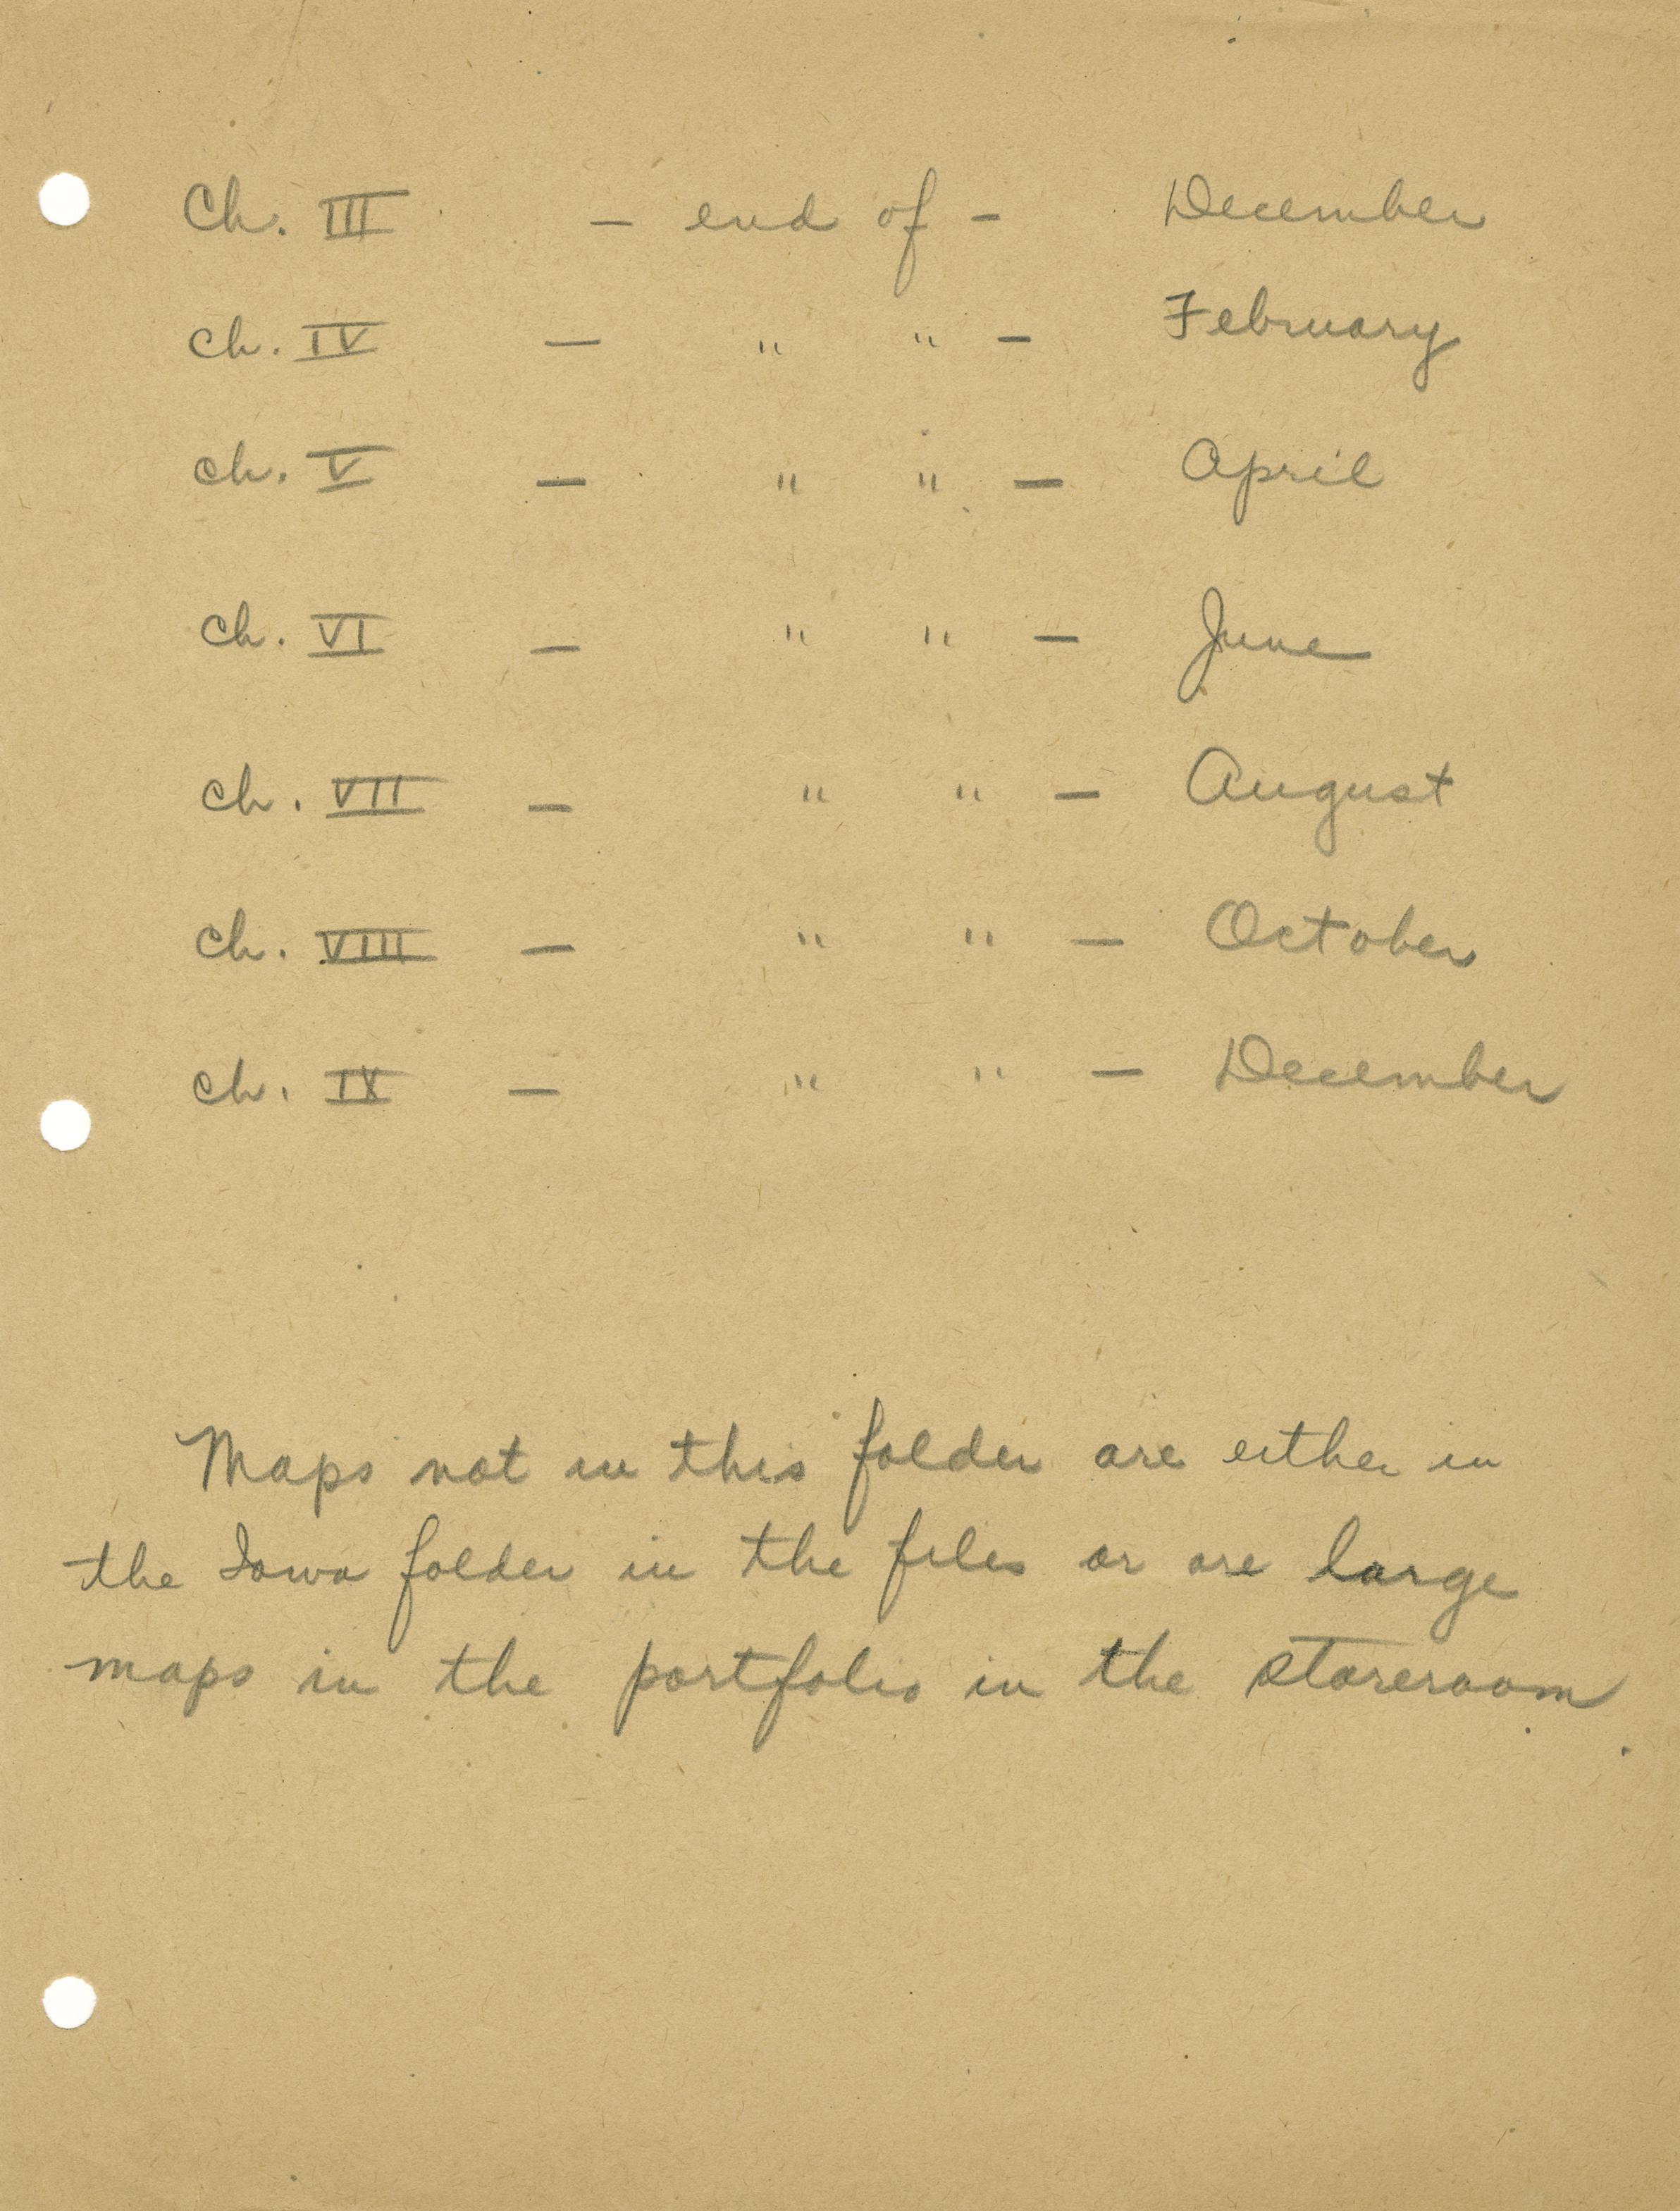 Ch. III - end of - December
Ch. IV - " " - February
Ch. V - " " - April
Ch. VI - " " - June
Ch. VII - " " - August
Ch. VIII - " " - October
Ch. IX - " " - December
Maps not in this folder are either in
the Iowa folder in the files or are large
maps in the portfolio in the storeroom.